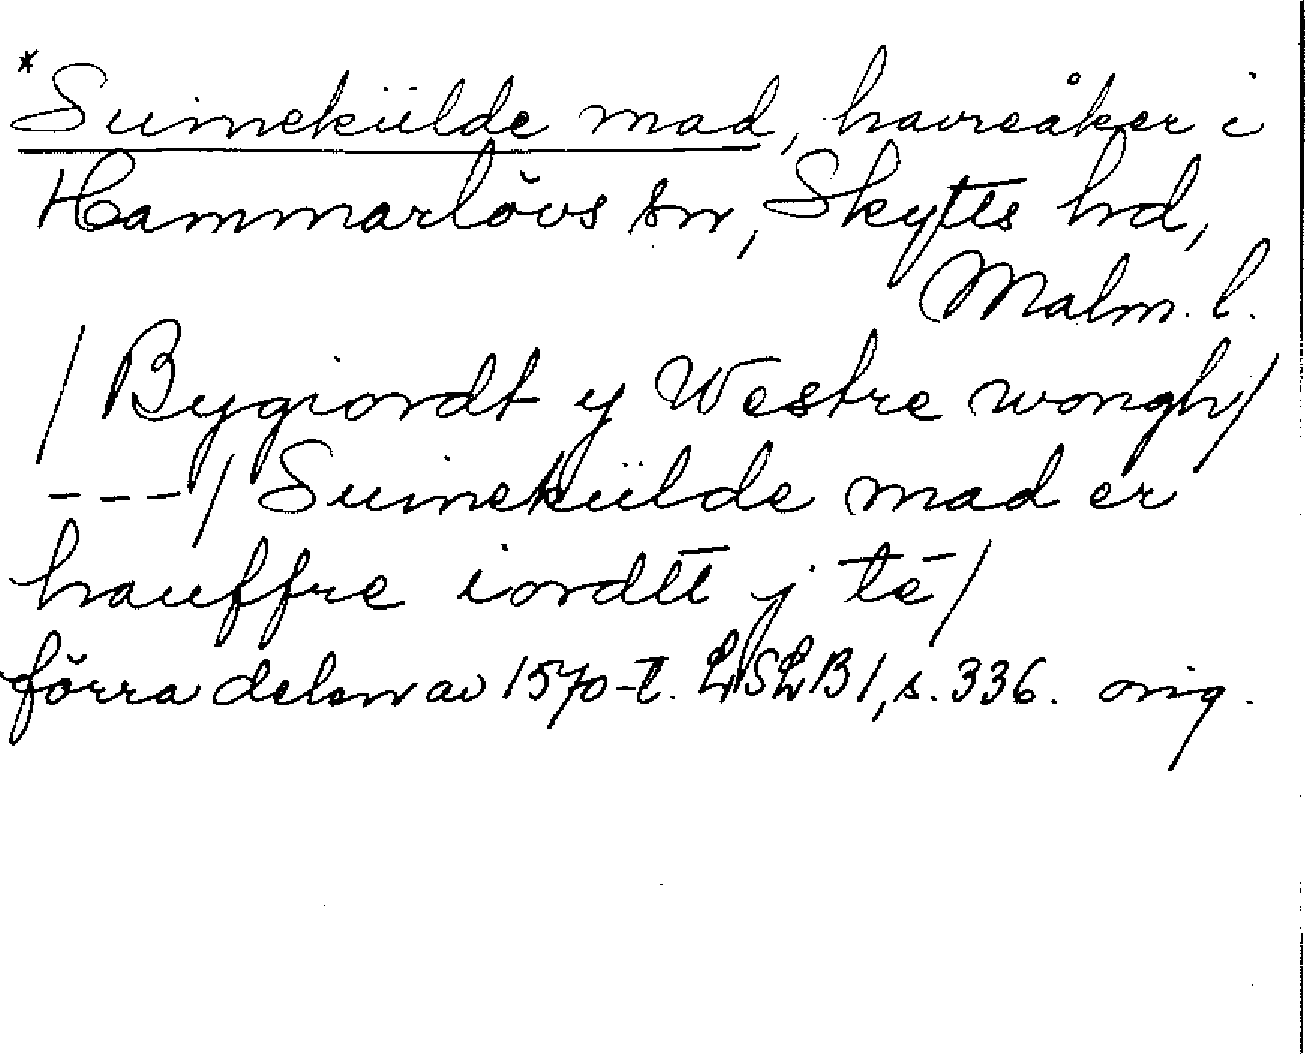 *Suinekülde mad, havreåker i
Hammarlövs sn, Skytts hd,
Malm. l.
/ Bygiordt y Westre wongh/
---/ Suinekülde mad er
hauffre iordtt j tē/
förra delen av 1570-t. LLSLB1, s. 336. orig.